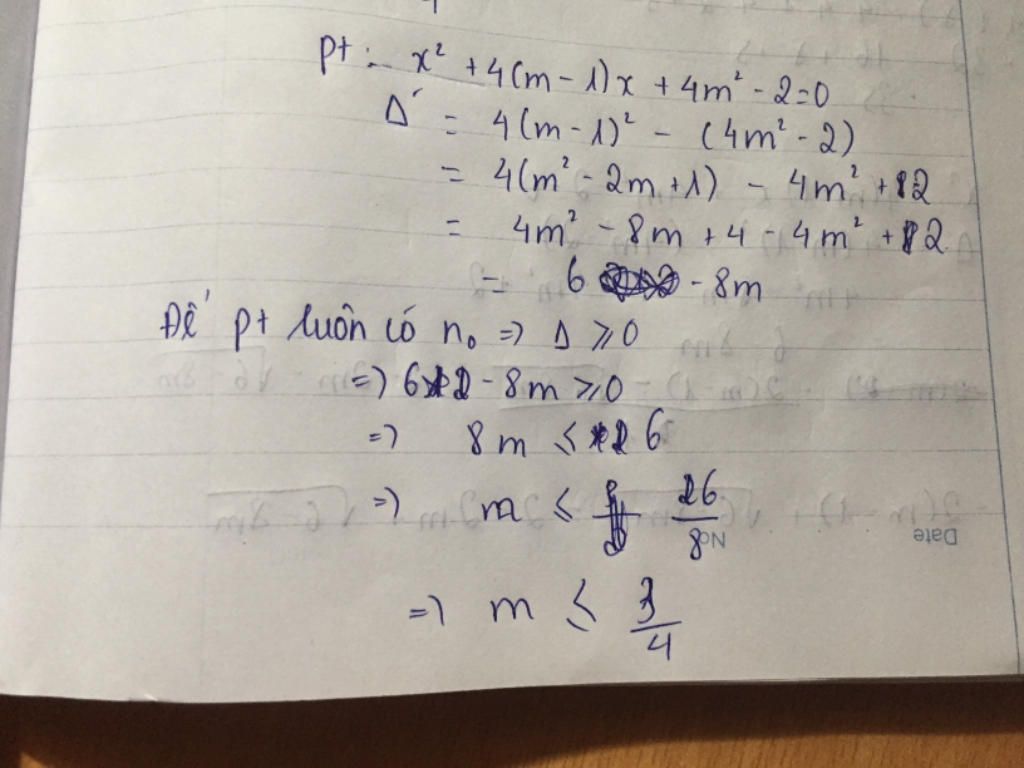 pt: x² + 4(m - 1)x + 4m² - 2 = 0
Δ' = 4(m - 1)² - (4m² - 2)
= 4(m² - 2m + 1) - 4m² + 2
= 4m² - 8m + 4 - 4m² + 2
= 6 - 8m
Để pt luôn có n₀ => Δ ≥ 0
=> 6 - 8m ≥ 0
=> 8m ≤ 6
=> m ≤ 6/8
No
Date
=> m ≤ 3/4